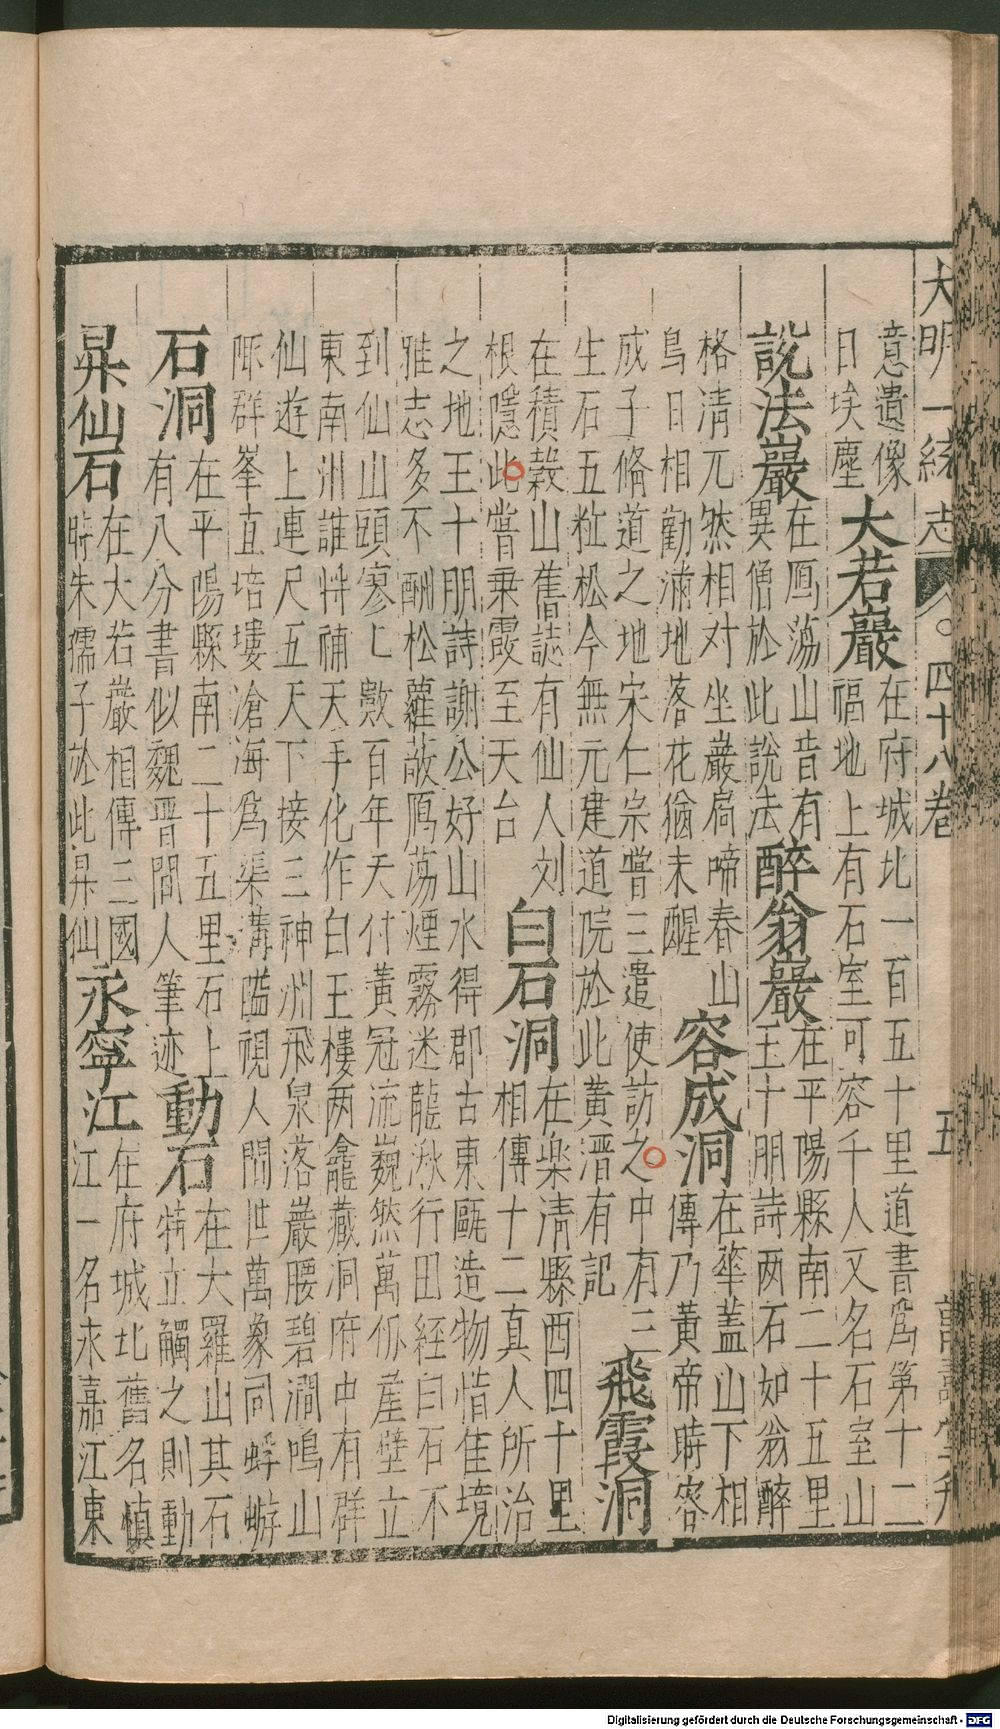 大明一統志 四十八卷 五
意遺像
日埃塵
大若巖
在府城北一百五十里道書爲第十二
福地上有石室可容千人又名石室山
說法巖
在鴈蕩山昔有
異僧於此說法
醉翁巖
在平陽縣南二十五里
王十朋詩两石如翁醉
格清兀然相对坐巖扃啼春山
鳥日相勸滿地落花猶未醒
容成洞
在華盖山下相
傳乃黃帝時容
成子脩道之地宋仁宗嘗三遣使訪之中有三
生石五粒松今無元建道院於此黃溍有記
飛霞洞
在積穀山舊誌有仙人刘
根隱此嘗乗霞至天台
白石洞
在楽清縣西四十里
相傳十二真人所治
之地王十朋詩謝公好山水得郡古東甌造物惜佳境
雅志多不酬松蘿蔽鴈蕩煙霧迷龍湫行田經白石不
到仙山頭寥〻數百年天付黃冠流巍然萬仞崖壁立
東南州誰将補天手化作白玉樓两龕藏洞府中有群
仙遊上連尺五天下接三神洲飛泉落巖腰碧澗鳴山
陬群峯直培塿滄海爲渠溝嗑視人間世萬象同蜉蝣
石洞
在平陽縣南二十五里石上
有八分書似魏晋間人筆迹
動石
在大羅山其石
特立觸之則動
昇仙石
在大若巖相傳三國
時朱孺子於此昇仙
永寧江
在府城北舊名慎
江一名永嘉江東
Digitalisierung gefördert durch die Deutsche Forschungsgemeinschaft - DFG